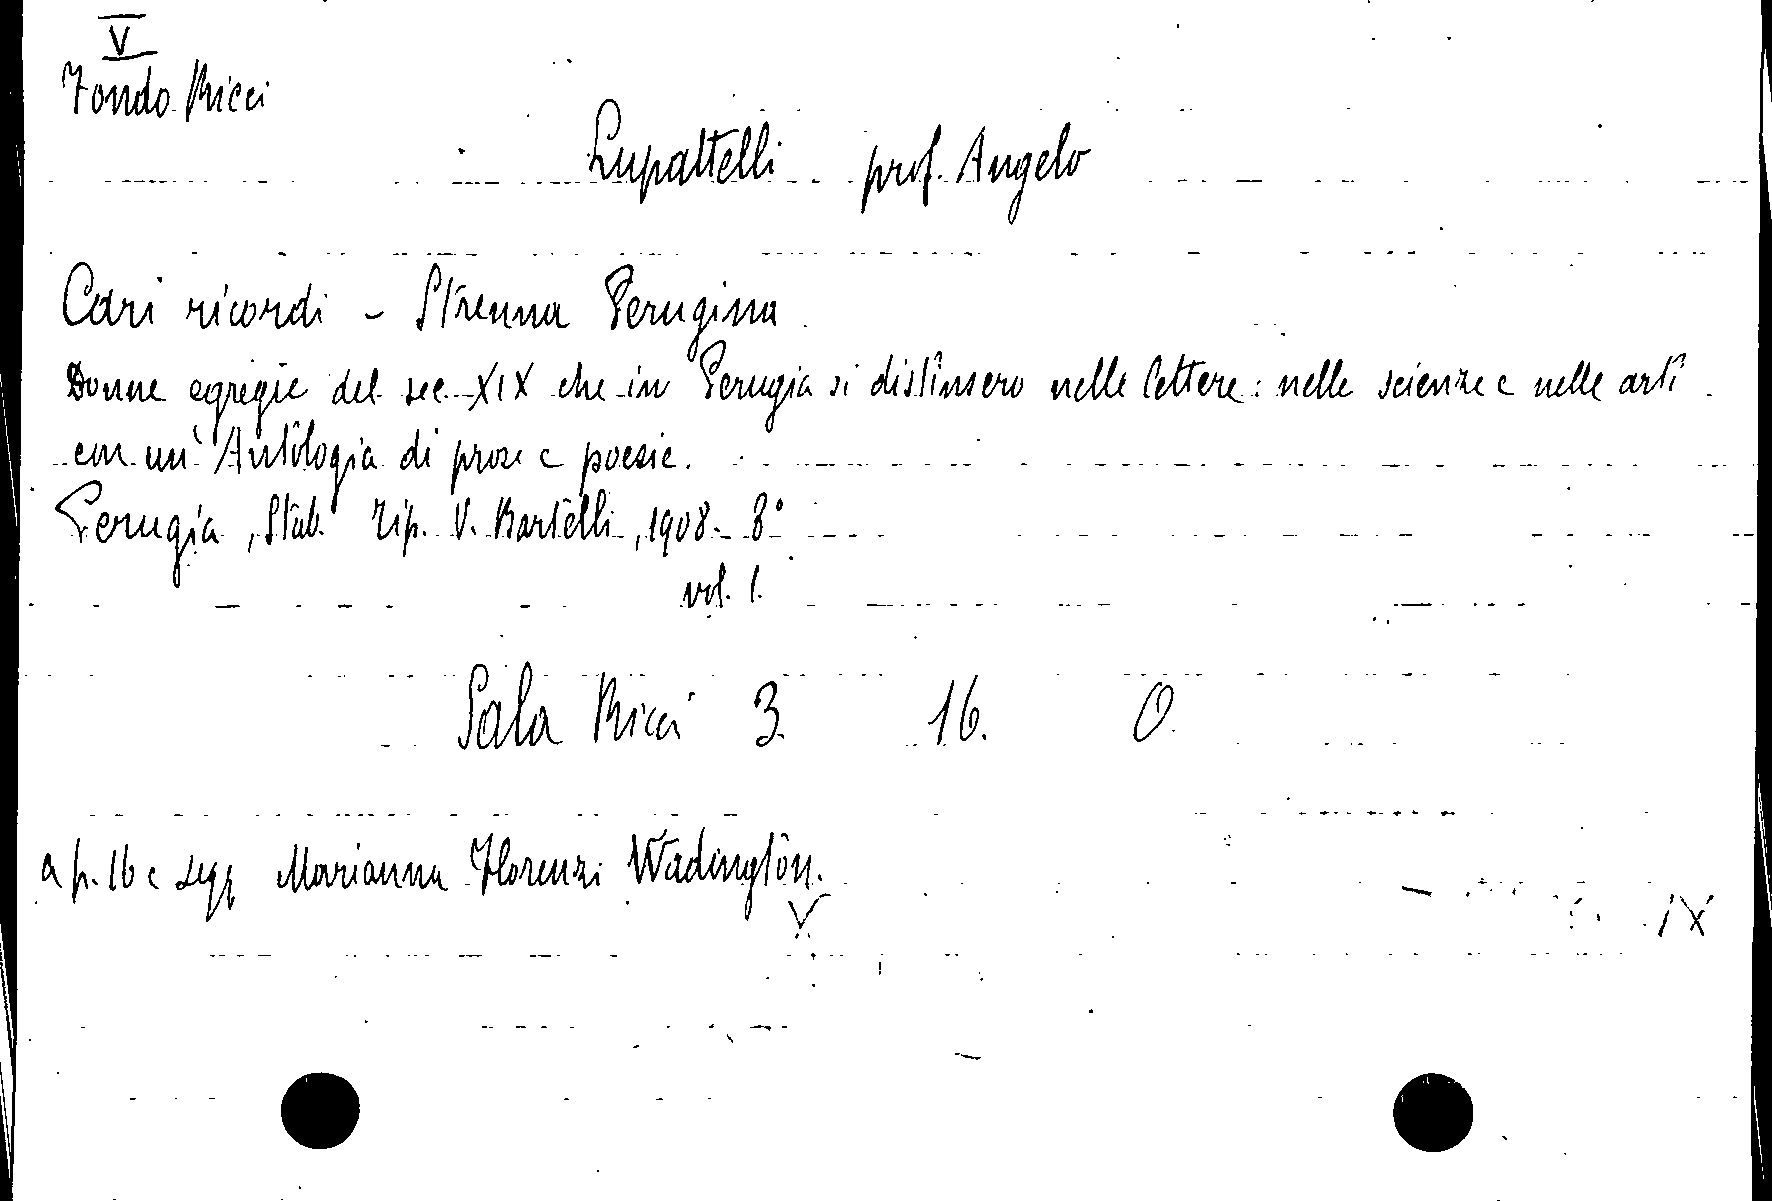 V
Fondo Ricci
Lupattelli prof. Angelo
Cari ricordi - Strenna Perugina
Donne egregie del sec. XIX che in Perugia si distinsero nelle lettere: nelle scienze e nelle arti
con un'Antologia di prose e poesie.
Perugia, Stab. Tip. V. Bartelli, 1908 - 8°
vol. 1.
Sala Ricci 3. 16. 0.
a p. 16 e segg Marianna Florenzi Wadington.
V
IX